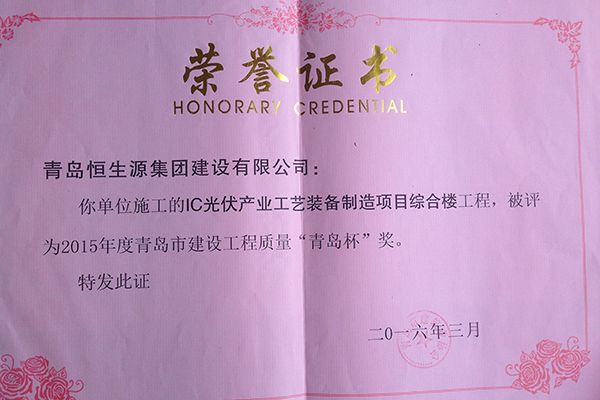 荣誉证书
HONORARY CREDENTIAL
青岛恒生源集团建设有限公司：
你单位施工的IC光伏产业工艺装备制造项目综合楼工程，被评
为2015年度青岛市建设工程质量“青岛杯”奖。
特发此证
二〇一六年三月